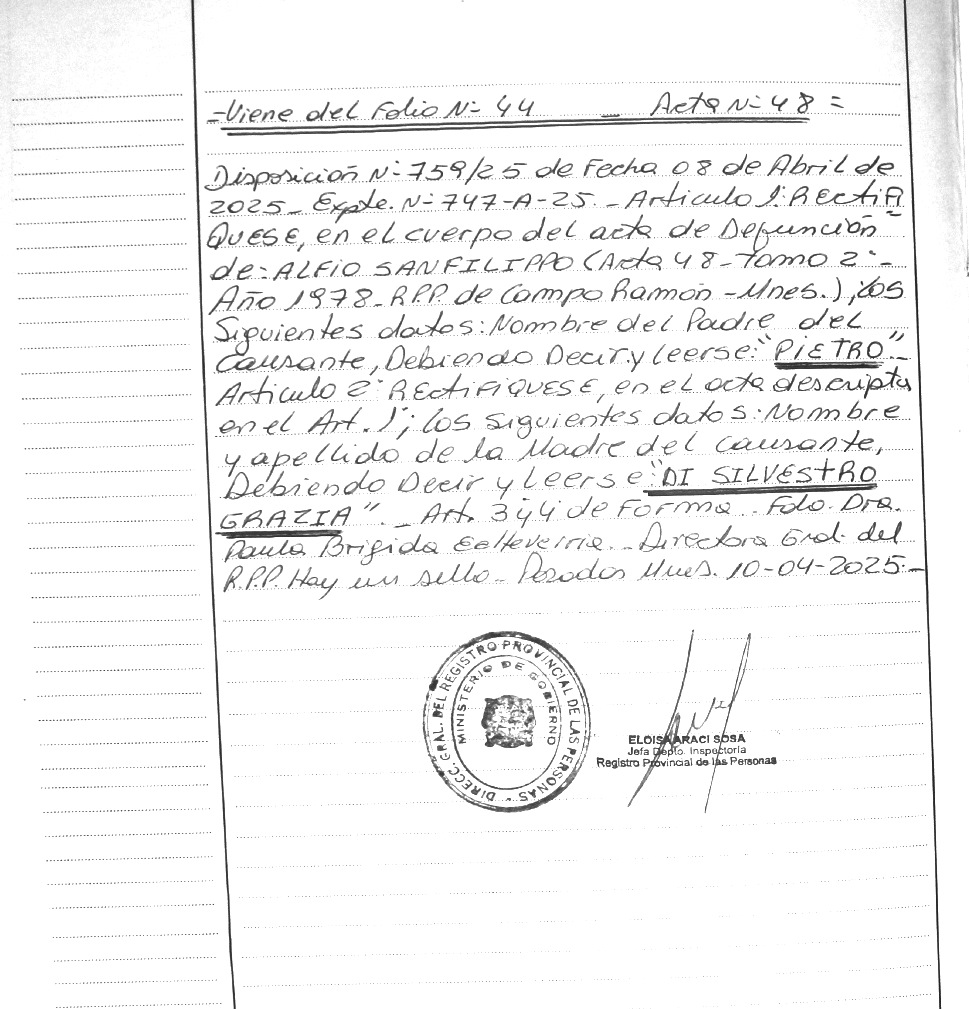 =Viene del Folio N- 44 _ Acta N- 48 =
Disposición N- 759/25 de Fecha 08 de Abril de
2025_ Expte. N- 747-A-25._ Articulo 1: RECtiFI
QUESE, en el cuerpo del acta de Defunción
de: ALFIO SANFILIPPO (Acta 48-tomo 2-
Año 1978-R.P.P. de Campo Ramón-Mnes.), los
Siguientes datos: Nombre del Padre del
Causante, Debiendo Decir y leerse: "PIETRO"_
Articulo 2: RECtiFIQUESE, en el acta descripta
en el Art. 1; los siguientes datos: Nombre
y apellido de la Madre del causante,
Debiendo Decir y leerse: "DI SILVEStRO
GRAZIA"._ Art. 3 y 4 de Forma_ Fdo. Dra.
Paula Brigida Echeverria_ Directora Gral. del
R.P.P. Hay un sello_ Posadas Mnes. 10-04-2025._
DIRECC. GRAL. DEL REGISTRO PROVINCIAL DE LAS PERSONAS -
MINISTERIO DE GOBIERNO
ELOISA ARACI SOSA
Jefa Depto. Inspectoria
Registro Provincial de las Personas